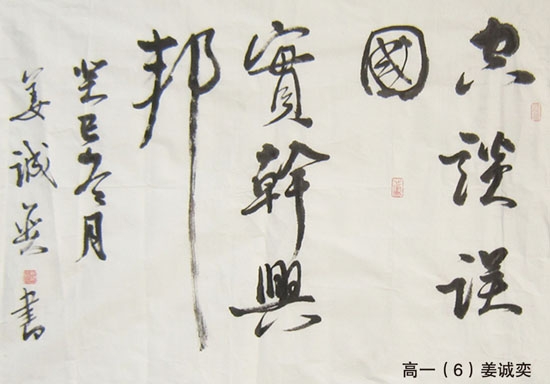 空谈误
國
實幹興
邦
癸巳冬月
姜诚奕書
高一（6）姜诚奕